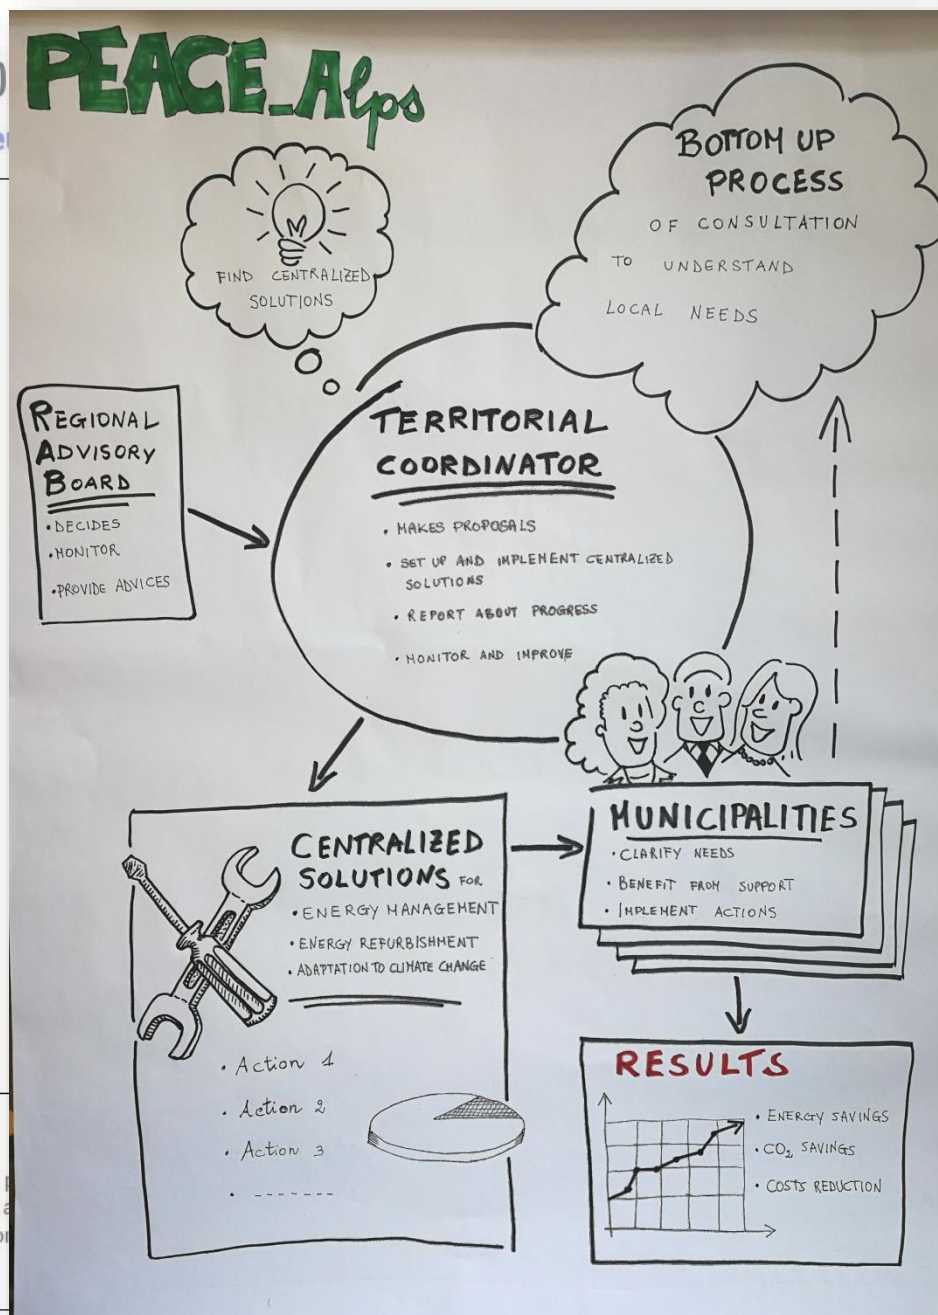 PEACE_Alps
BOTTOM UP
PROCESS
OF CONSULTATION
TO UNDERSTAND
LOCAL NEEDS
FIND CENTRALIZED
SOLUTIONS
REGIONAL
ADVISORY
BOARD
• DECIDES
• MONITOR
• PROVIDE ADVICES
TERRITORIAL
COORDINATOR
• MAKES PROPOSALS
• SET UP AND IMPLEMENT CENTRALIZED
SOLUTIONS
• REPORT ABOUT PROGRESS
• MONITOR AND INPROVE
CENTRALIZED
SOLUTIONS FOR
• ENERGY MANAGEMENT
• ENERGY REFURBISHMENT
• ADAPTATION TO CLIMATE CHANGE
• Action 1
• Action 2
• Action 3
• -------
MUNICIPALITIES
• CLARIFY NEEDS
• BENEFIT FROM SUPPORT
• IMPLEMENT ACTIONS
RESULTS
• ENERGY SAVINGS
• CO₂ SAVINGS
• COSTS REDUCTION